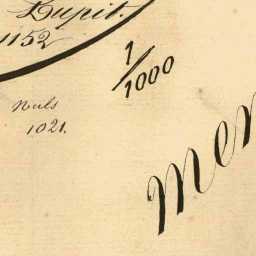 Lupit.
1152
1/1000
Nuls
1021.
mer